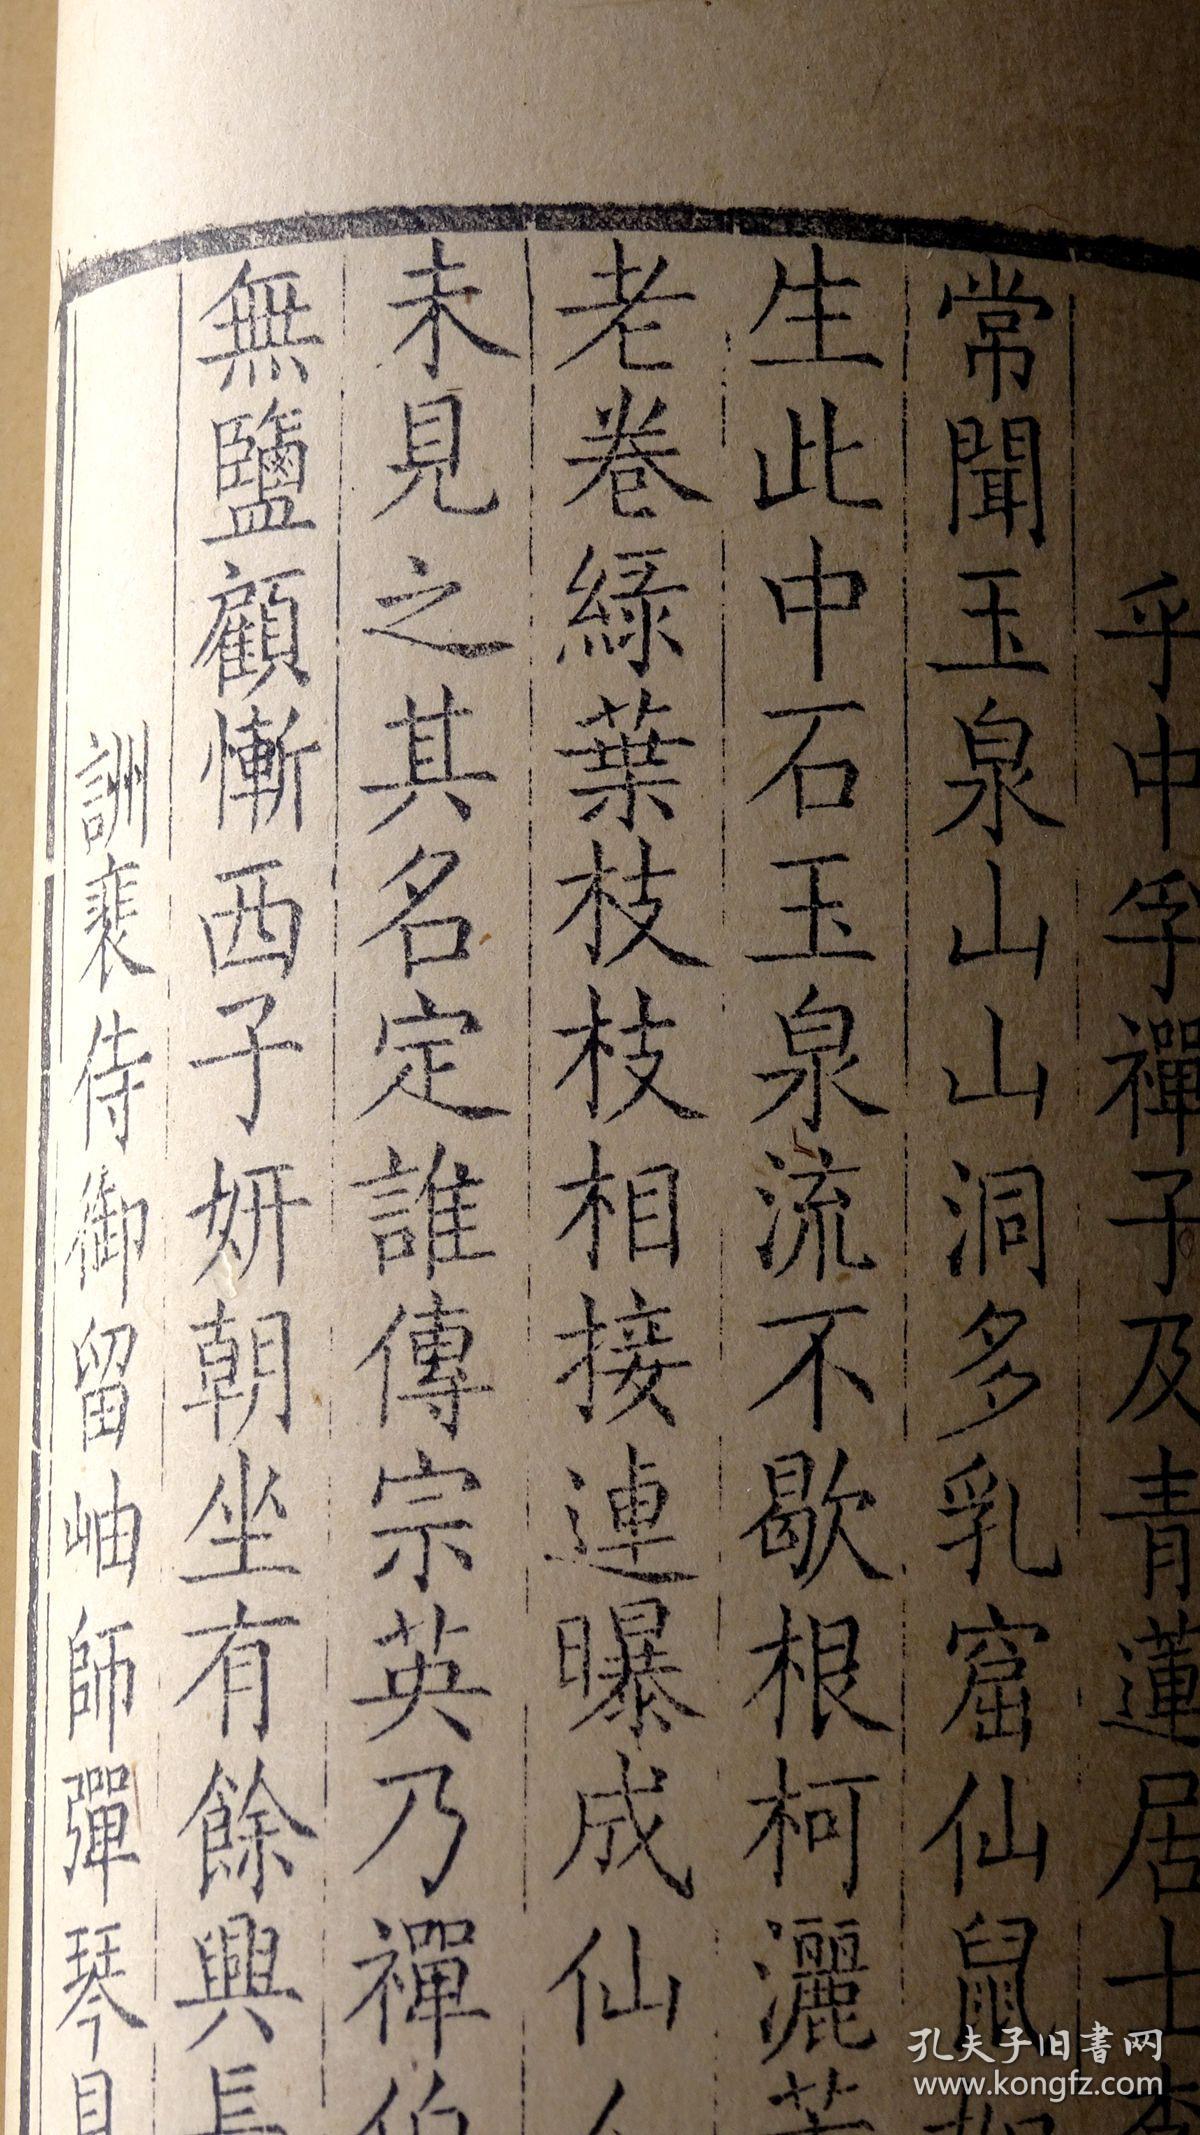 乎中孚禪子及青蓮居士
常聞玉泉山山洞多乳窟仙鼠如
生此中石玉泉流不歇根柯灑芳
老卷綠葉枝枝相接連曝成仙人
未見之其名定誰傳宗英乃禪伯
無鹽顧慚西子妍朝坐有餘興長
詶裴侍御留岫師彈琴見
孔夫子旧书网
www.kongfz.com